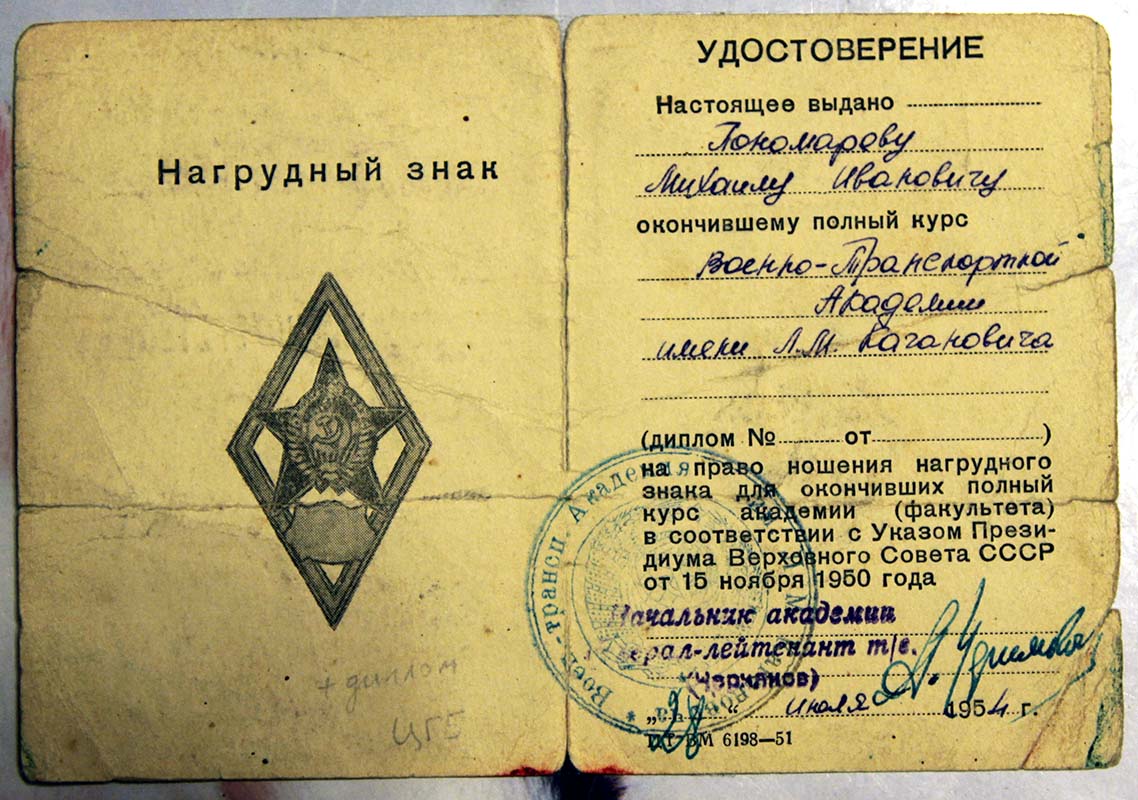 Нагрудный знак
+ диплом
УДОСТОВЕРЕНИЕ
Настоящее выдано
Пономареву
Михаилу Ивановичу
окончившему полный курс
Военно-Транспортной
Академии
имени Л.М. Кагановича
(диплом № от )
на право ношения нагрудного
знака для окончивших полный
курс академии (факультета)
в соответствии с Указом Прези-
диума Верховного Совета СССР
от 15 ноября 1950 года
Начальник академии
т/в.
„28“ июля 1954 г.
ВМ 6198—51
Воен.-трансп. Академия